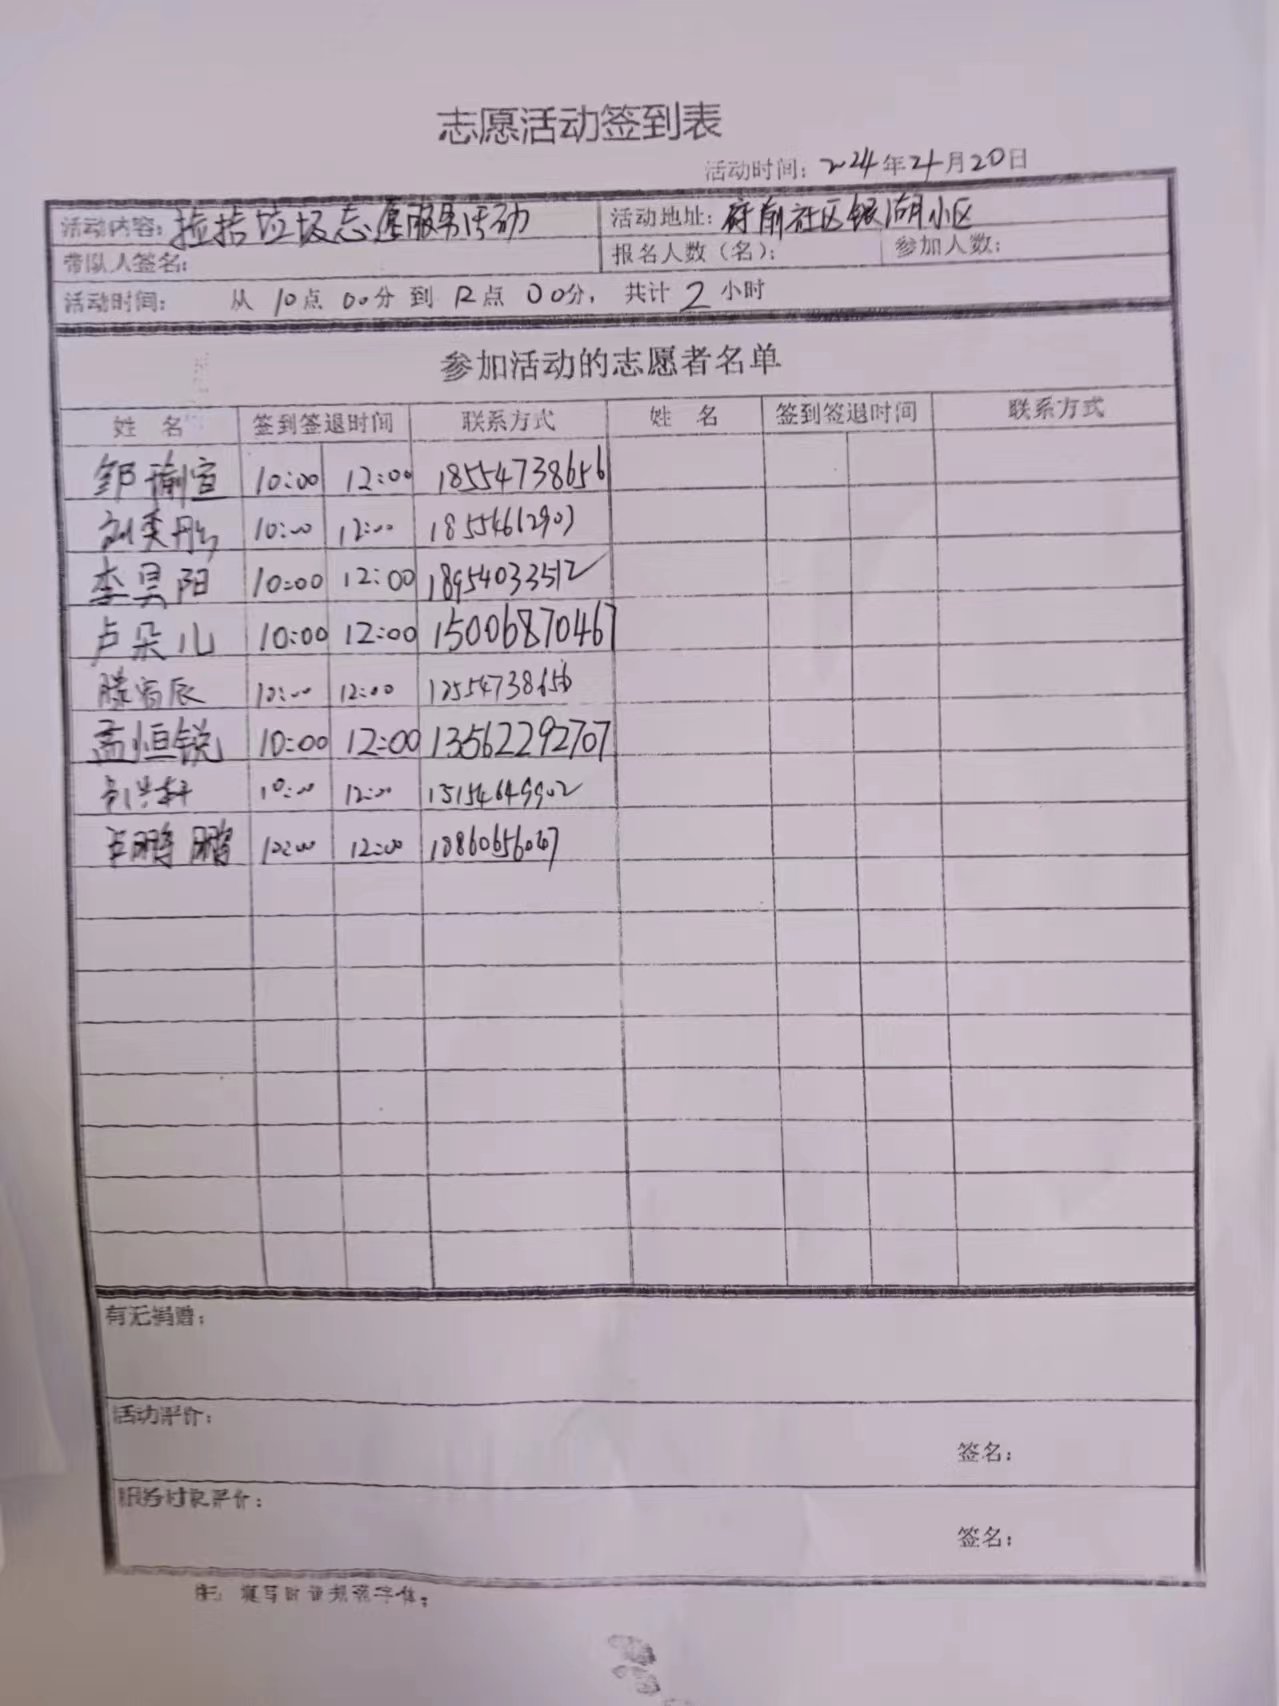 志愿活动签到表
活动时间：2024年4月20日
活动内容：捡拾垃圾志愿服务活动 活动地址：府前社区银湖小区
带队人签名： 报名人数（名）： 参加人数：
活动时间： 从 10点 00分 到 12点 00分， 共计 2 小时
参加活动的志愿者名单
姓 名 签到签退时间 联系方式 姓 名 签到签退时间 联系方式
邹瑜宣 10:00 12:00 18554738656
刘奕彤 10:00 12:00 18554612903
李昊阳 10:00 12:00 18954033512
卢朵儿 10:00 12:00 15006870467
滕宥辰 10:00 12:00 12554738656
孟恒锐 10:00 12:00 13562292707
10:00 12:00 15154649902
鹏 10:00 12:00 18860656067
有无捐赠：
活动评价：
签名：
服务对象评价：
签名：
注：填写时请规范字体；